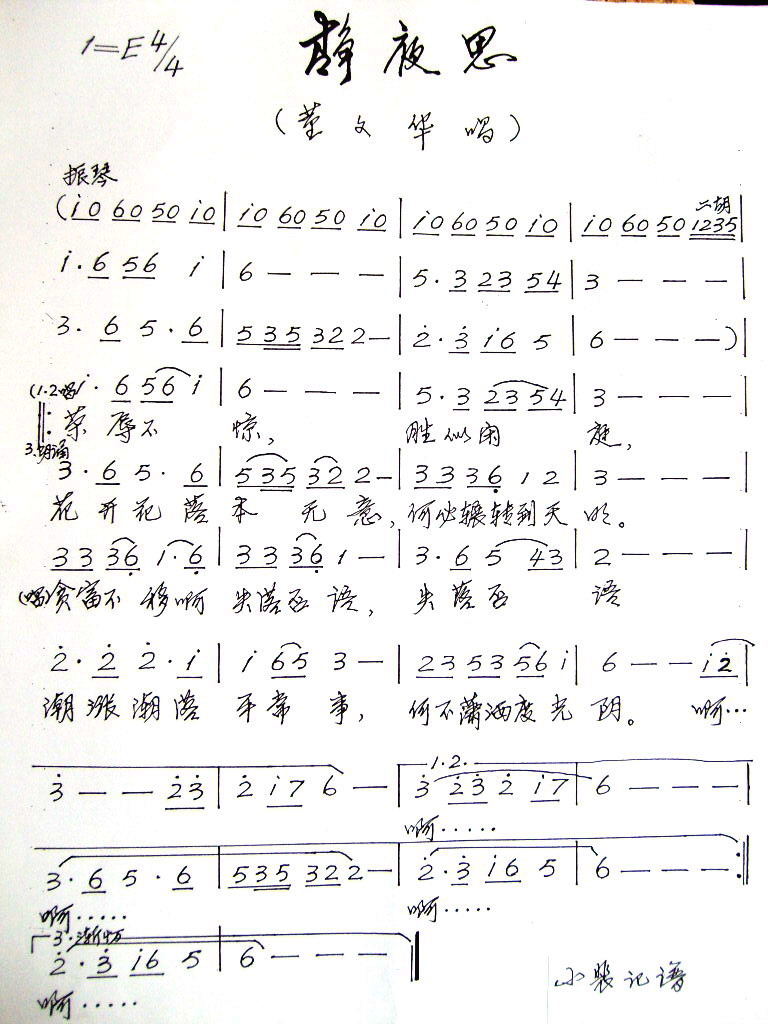 1=E 4/4 静夜思
(董文华唱)
振琴
(i0 60 50 i0 | i0 60 50 i0 | i0 60 50 i0 | i0 60 50 1235 |
二胡
i·6 56 i | 6 — — — | 5·3 23 54 | 3 — — — |
3·6 5·6 | 535 322— | 2·3 i6 5 | 6 — — —)
(1.2唱 i·6 56 i | 6 — — — | 5·3 23 54 | 3 — — — |
荣辱不 惊, 胜似闲 庭,
3.朗诵
3·6 5·6 | 535 322— | 33 36 12 | 3 — — — |
花开花落本无意,何必辗转到天明。
33 36 1·6 | 33 36 1— | 3·6 5 43 | 2 — — — |
(唱)贫富不移啊 失落否语, 失落否 语
2·2 2·i | i 65 3— | 23 53 56 i | 6 — — i2 |
潮涨潮落 平常事, 何不潇洒度光阴。 啊…
3 — — 23 | 2 i7 6 — | 1.2. 3 23 2 i7 | 6 — — — |
啊·····
3·6 5·6 | 535 322— | 2·3 i6 5 | 6 — — — :||
啊····· 啊·····
3·渐慢
2·3 i6 5 | 6 — — — ||
啊·····
小裴记谱